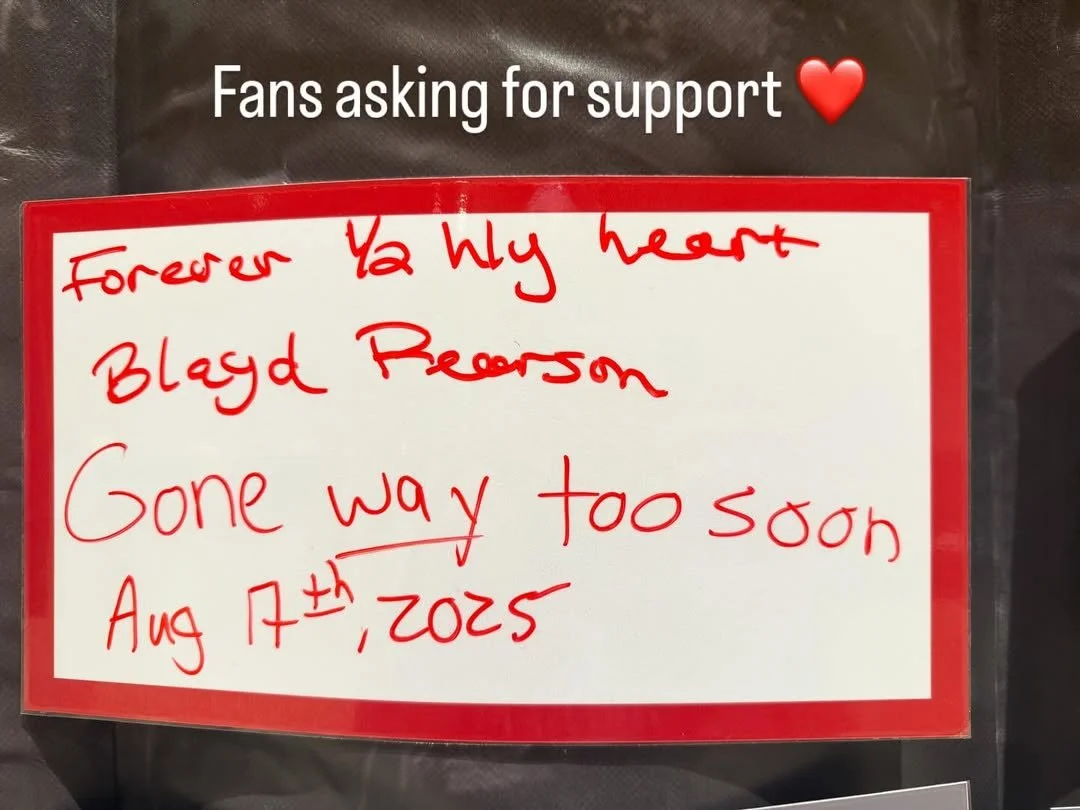 Fans asking for support ❤️
Forever 1/2 My heart
Blayd Pearson
Gone way too soon
Aug 17th, 2025